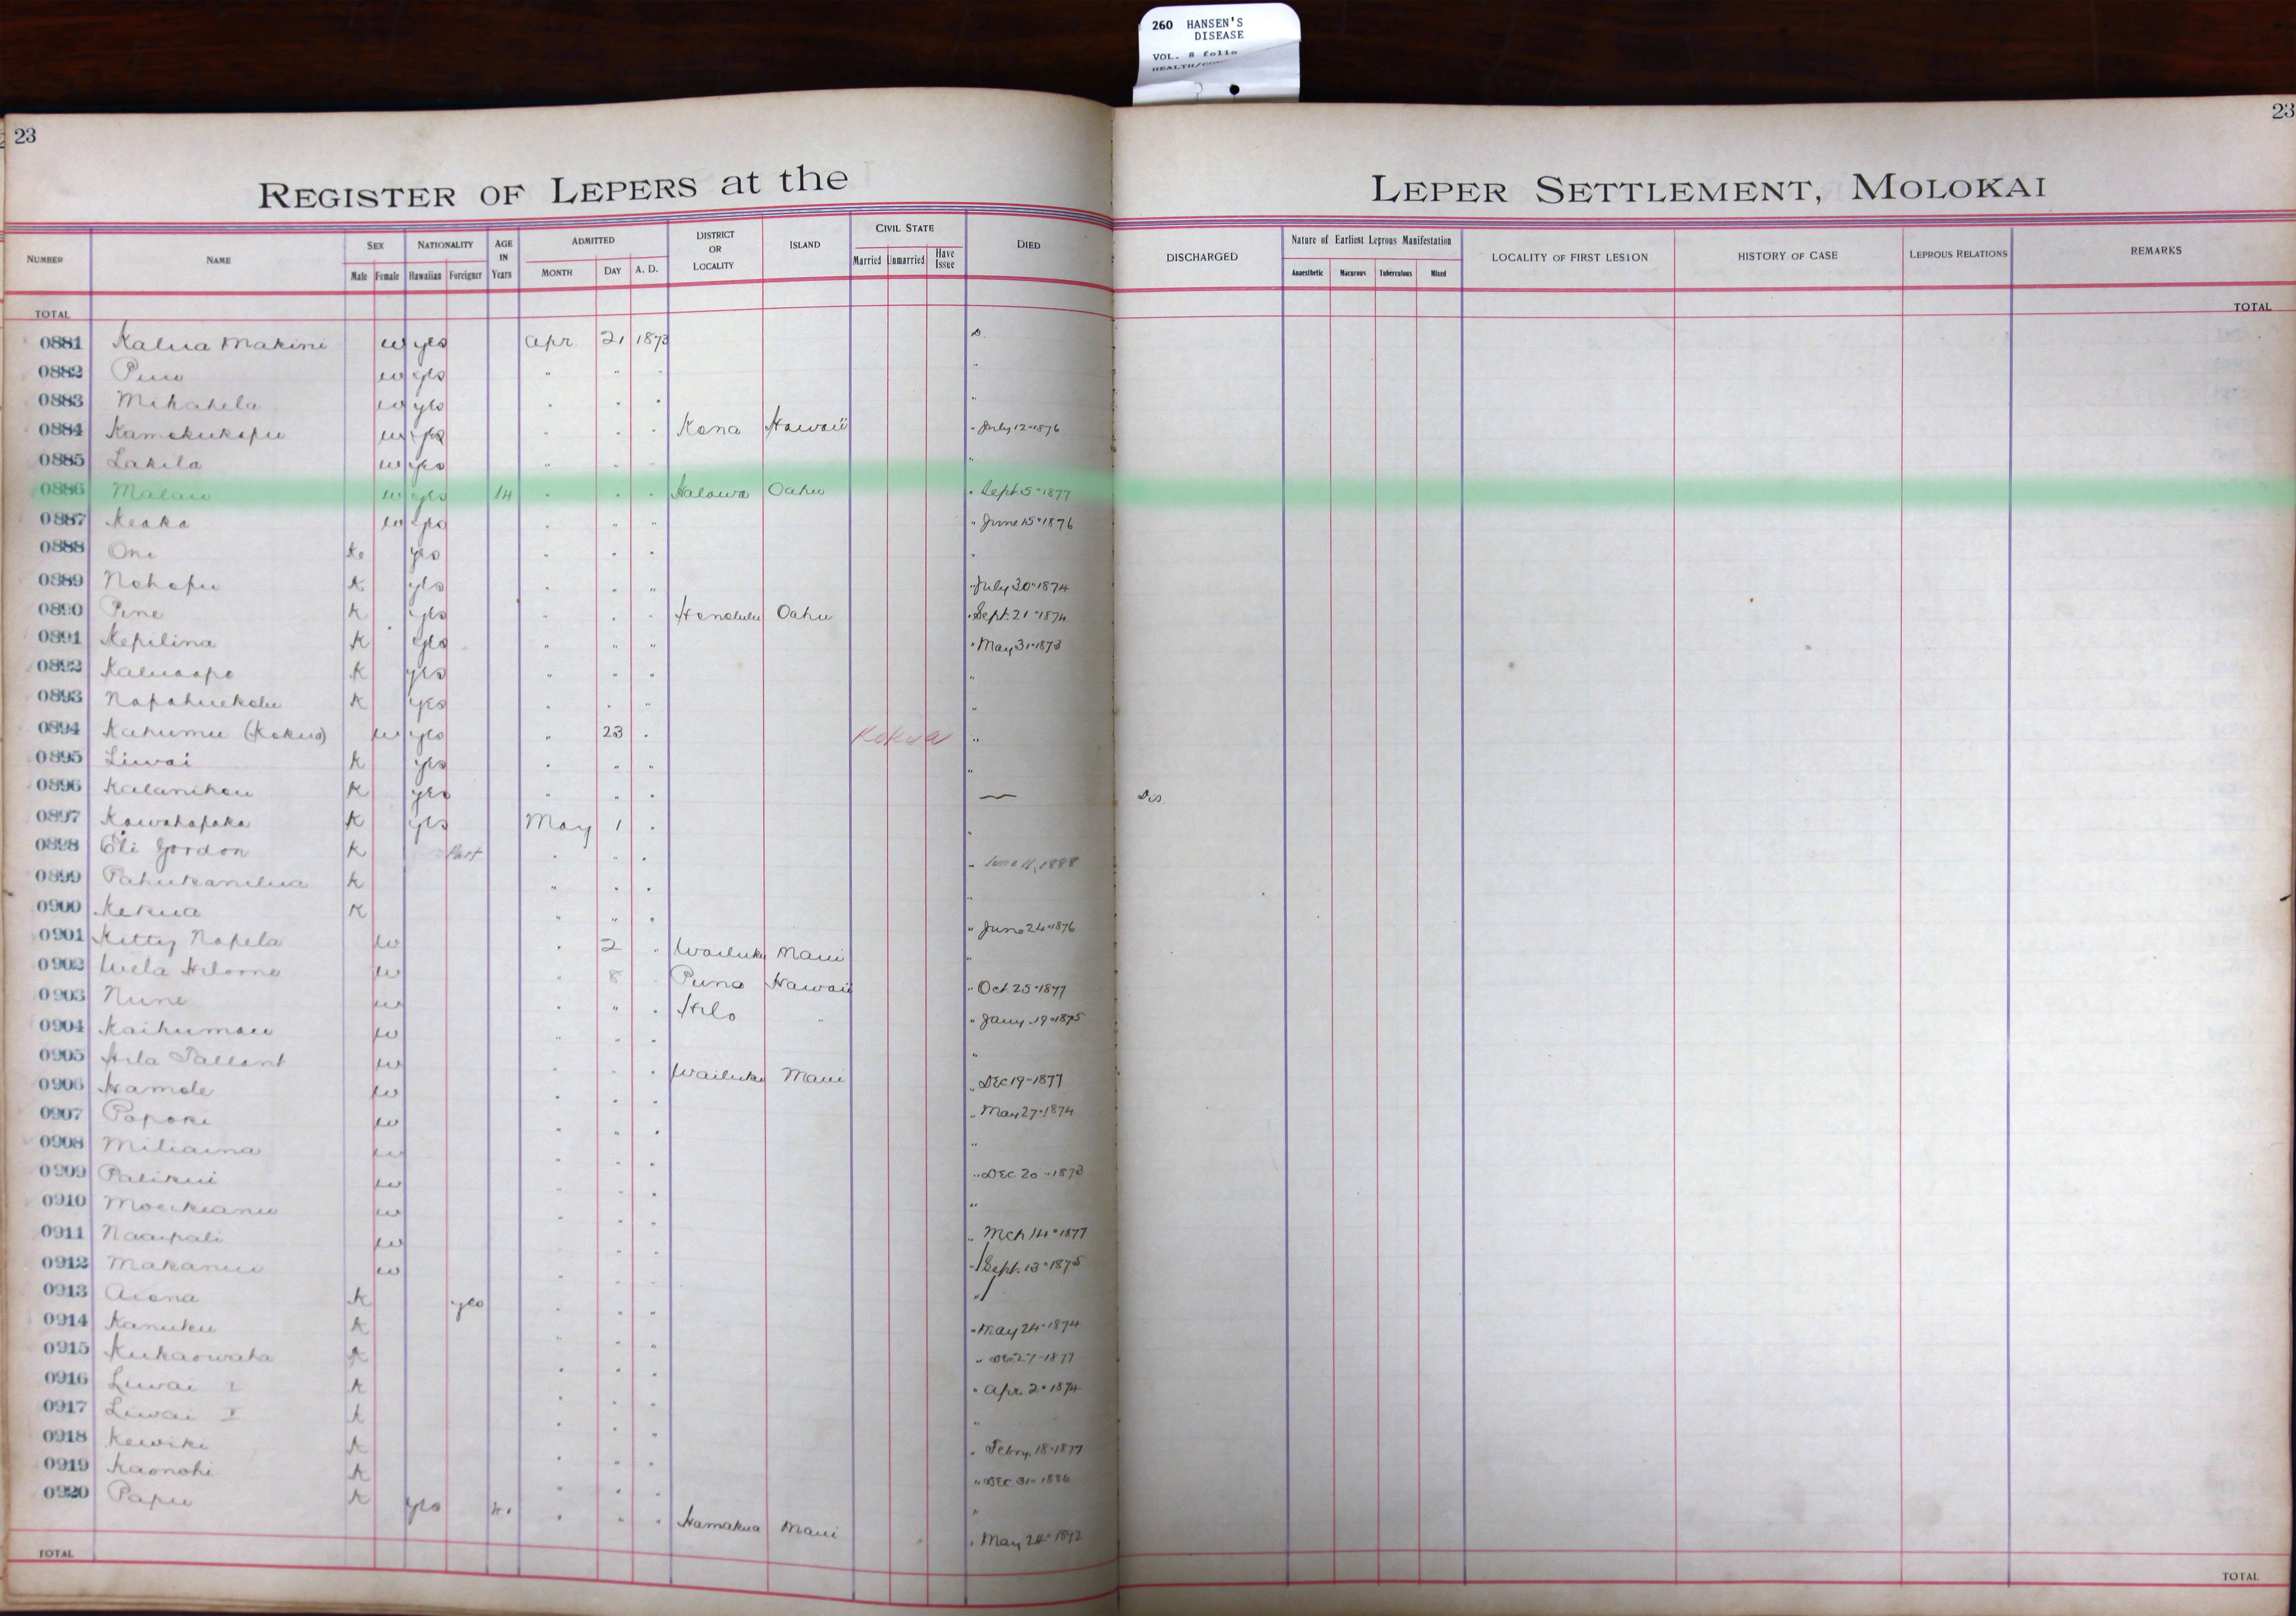 260 HANSEN'S
DISEASE
VOL. 8 folio
23
23
REGISTER OF LEPERS at the LEPER SETTLEMENT, MOLOKAI
NUMBER NAME SEX NATIONALITY AGE IN Years ADMITTED DISTRICT OR LOCALITY ISLAND CIVIL STATE DIED DISCHARGED Nature of Earliest Leprous Manifestation LOCALITY OF FIRST LESION HISTORY OF CASE LEPROUS RELATIONS REMARKS
Male Female Hawaiian Foreigner MONTH DAY A. D. Married Unmarried Have Issue Anaesthetic Macurous Tuberculous Mixed
TOTAL TOTAL
0881 Kalua Makini w yes Apr 21 1873 D.
0882 w yes " " " "
0883 Mikahela w yes " " " "
0884 Kamokukapu w yes " " " Kona Hawaii " July 12 " 1876
0885 Lakila w yes " " " "
0886 Malau w yes 14 " " " Halawa Oahu " Sept 5 " 1877
0887 Keaka w yes " " " " June 15 " 1876
0888 Oni K yes " " " "
0889 Nohopu K yes " " " " July 30 " 1874
0890 Pine K yes " " " Honolulu Oahu " Sept. 21 " 1874
0891 Kepilina K yes " " " " May 31 " 1873
0892 K yes " " " "
0893 Napahuekolu K yes " " " "
0894 Kahumu (Kokua) w yes " 23 " Kokua "
0895 Liwai K yes " " " "
0896 Kalanihou K yes " " " — Dis
0897 Kawahapaka K yes May 1 " "
0898 Eli Gordon K Part " " " " June 11, 1888
0899 Pahukanilua K " " " "
0900 Kekua K " " " " June 24 " 1876
0901 Kitty Napela w " 2 " Wailuku Maui "
0902 w " 8 Puna Hawaii " Oct. 25 " 1877
0903 Nune w " " " Hilo " " Jany. 19 " 1875
0904 Kaihumau w " " " "
0905 Hila Tallant w " " " Wailuku Maui " Dec 19 " 1877
0906 Hamole w " " " " May 27 " 1874
0907 Papoki w " " " "
0908 Miliaina w " " " " Dec. 20 " 1873
0909 Palikui w " " " "
0910 Moeikeanu w " " " " Mch 14 " 1877
0911 Naaipali w " " " " Sept. 13 " 1875
0912 Makanui w " " " "
0913 Aiona K yes " " " " May 24 " 1874
0914 Kanuku K " " " 1877
0915 Kukaowaha K " " " " Apr. 2 " 1874
0916 Liwai I K " " " "
0917 Liwai K " " " " Febry. 18 " 1877
0918 Kewiki K " " " " Dec 31 " 1886
0919 Kaonohi K " " " "
0920 Papu K yes " " " Hamakua Maui " May 24
TOTAL TOTAL